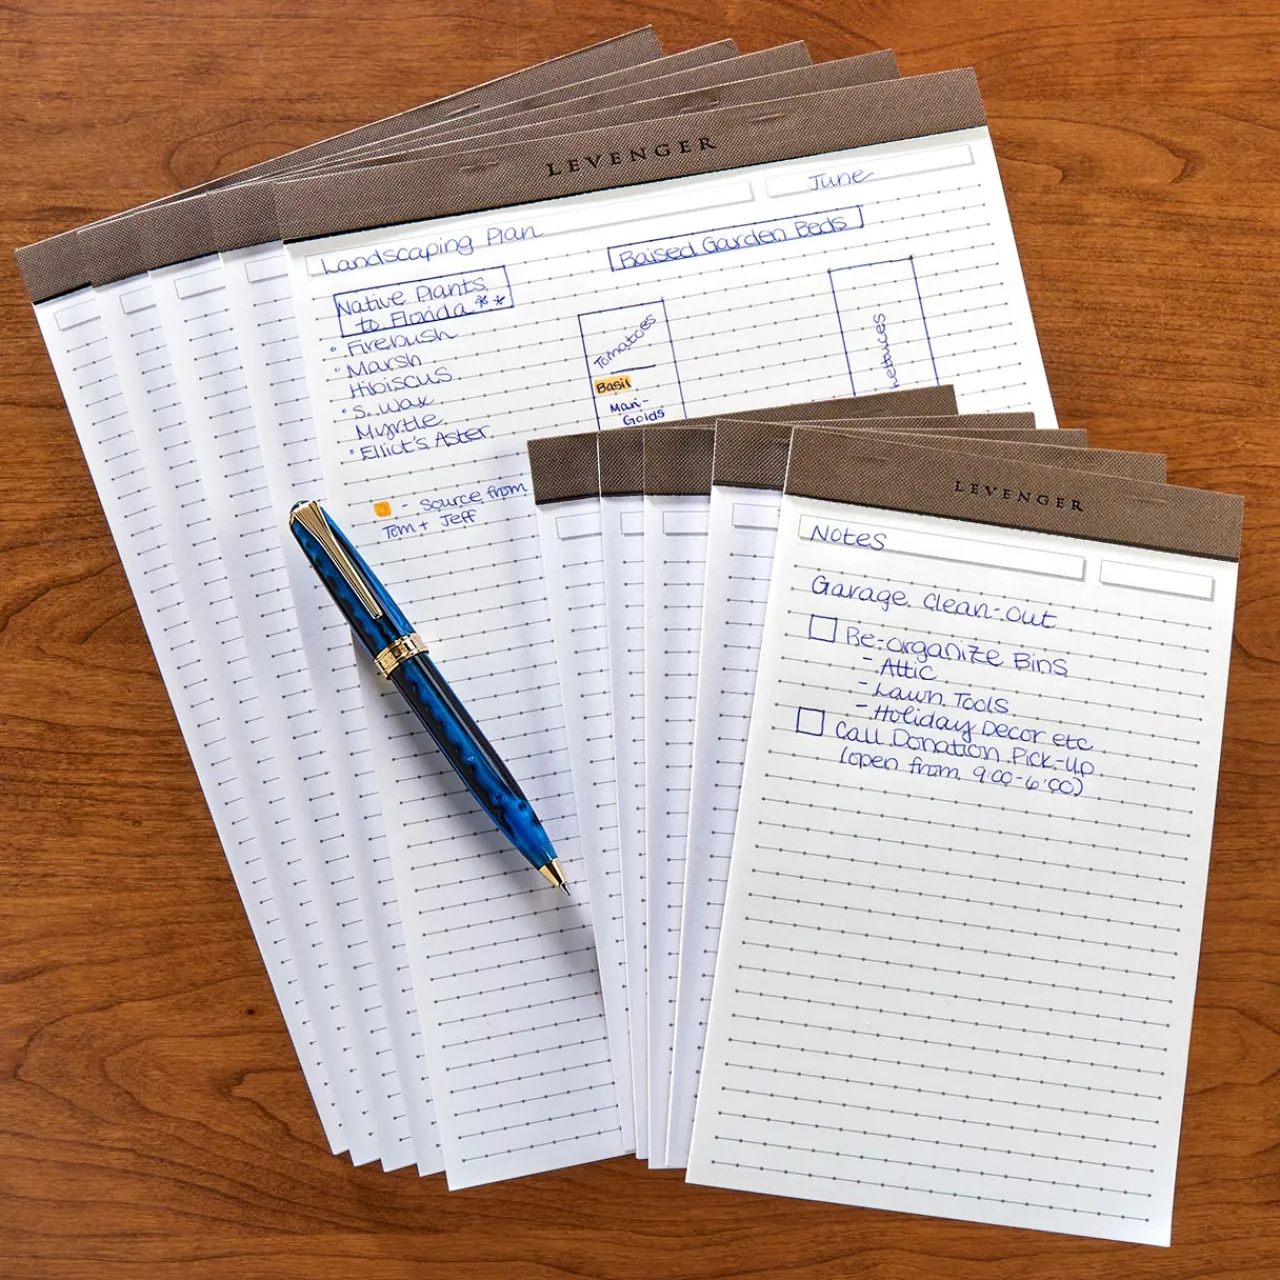 LEVENGER
June
Landscaping Plan
Raised Garden Beds
Native Plants
to Florida **
• Firebush
• Marsh
Hibiscus
• S. Wax
Myrtle
• Elliot's Aster
Tomatoes
Basil
Mari-
Golds
Lettuces
- Source from
Tom + Jeff
LEVENGER
Notes
Garage clean-out
Re-organize Bins
- Attic
- Lawn Tools
- Holiday Decor etc
Call Donation Pick-up
(open from 9:00-6:00)